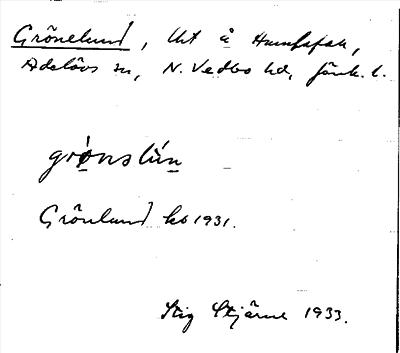 Grönelund, lht å Humsafall,
Adelövs sn, N. Vedbo hd, Jönk. l.
grønslún
Grönlund kb 1931.
Stig Stjärne 1933.